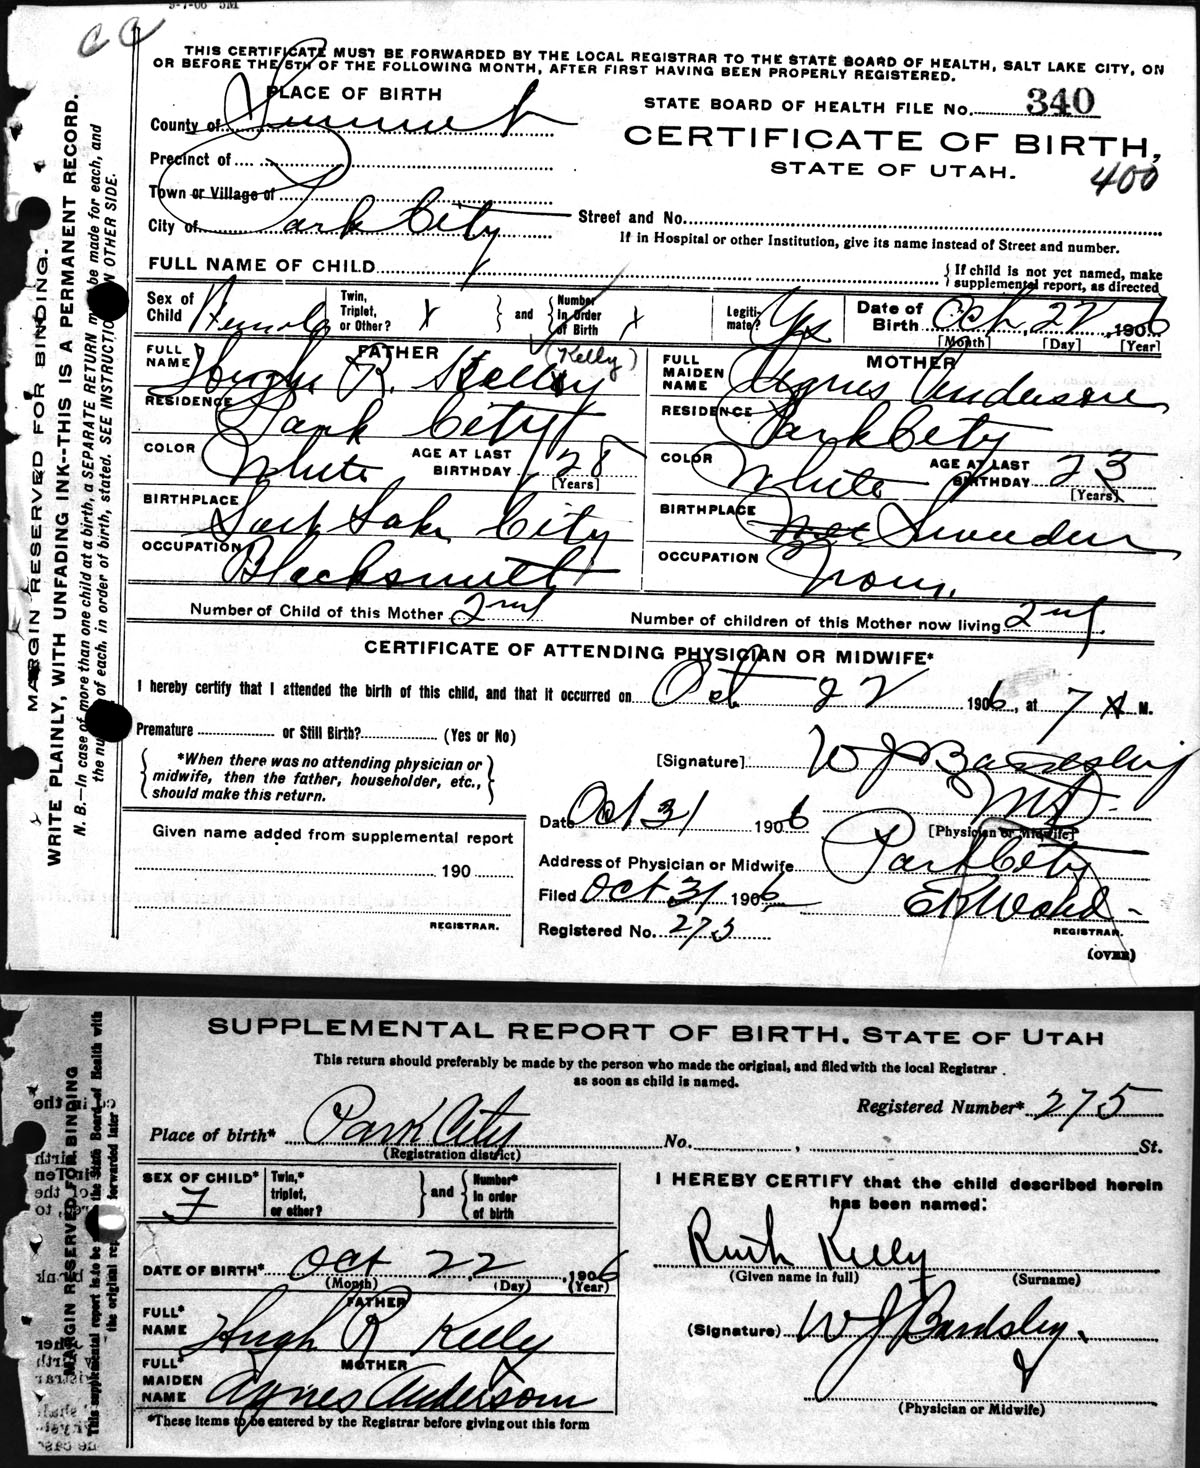 9-7-06 5M
C C
THIS CERTIFICATE MUST BE FORWARDED BY THE LOCAL REGISTRAR TO THE STATE BOARD OF HEALTH, SALT LAKE CITY, ON
OR BEFORE THE 5TH OF THE FOLLOWING MONTH, AFTER FIRST HAVING BEEN PROPERLY REGISTERED.
MARGIN RESERVED FOR BINDING.
WRITE PLAINLY, WITH UNFADING INK--THIS IS A PERMANENT RECORD.
N. B.—In case of more than one child at a birth, a SEPARATE RETURN must be made for each, and
the number of each, in order of birth, stated. SEE INSTRUCTIONS ON OTHER SIDE.
PLACE OF BIRTH
County of Summit
Precinct of
Town or Village of
City of Park City
STATE BOARD OF HEALTH FILE No. 340
CERTIFICATE OF BIRTH,
STATE OF UTAH.
400
Street and No.
If in Hospital or other Institution, give its name instead of Street and number.
FULL NAME OF CHILD
If child is not yet named, make
supplemental report, as directed
Sex of Child Female
Twin, Triplet, or Other? X
and Number In Order of Birth X
Legitimate? Yes
Date of Birth Oct. 22, 1906
[Month] [Day] [Year]
FATHER
FULL NAME Hugh R. Kelly (Kelly)
RESIDENCE Park City
COLOR White AGE AT LAST BIRTHDAY 28
[Years]
BIRTHPLACE Salt Lake City
OCCUPATION Blacksmith
MOTHER
FULL MAIDEN NAME Agnes Anderson
RESIDENCE Park City
COLOR White AGE AT LAST BIRTHDAY 23
[Years]
BIRTHPLACE Sweeden
OCCUPATION
Number of Child of this Mother 2nd
Number of children of this Mother now living 2nd
CERTIFICATE OF ATTENDING PHYSICIAN OR MIDWIFE*
I hereby certify that I attended the birth of this child, and that it occurred on Oct. 22 1906, at 7 A M.
Premature or Still Birth? (Yes or No)
*When there was no attending physician or
midwife, then the father, householder, etc.,
should make this return.
[Signature] W J Bardsley
M D.
[Physician or Midwife]
Date Oct 31 1906
Address of Physician or Midwife Park City
Filed Oct 31 1906
Registered No. 275
REGISTRAR.
(OVER)
Given name added from supplemental report
190
REGISTRAR.
SUPPLEMENTAL REPORT OF BIRTH, STATE OF UTAH
This return should preferably be made by the person who made the original, and filed with the local Registrar
as soon as child is named.
MARGIN RESERVED FOR BINDING
Registered Number* 275
Place of birth* Park City No. , St.
(Registration district)
SEX OF CHILD* F
Twin,* triplet, or other?
and Number* in order of birth
DATE OF BIRTH* Oct 22, 1906
(Month) (Day) (Year)
FATHER
FULL* NAME Hugh R Kelly
MOTHER
FULL* MAIDEN NAME Agnes Anderson
*These items to be entered by the Registrar before giving out this form
I HEREBY CERTIFY that the child described herein
has been named:
Ruth Kelly
(Given name in full) (Surname)
(Signature) W J Bardsley.
(Physician or Midwife)